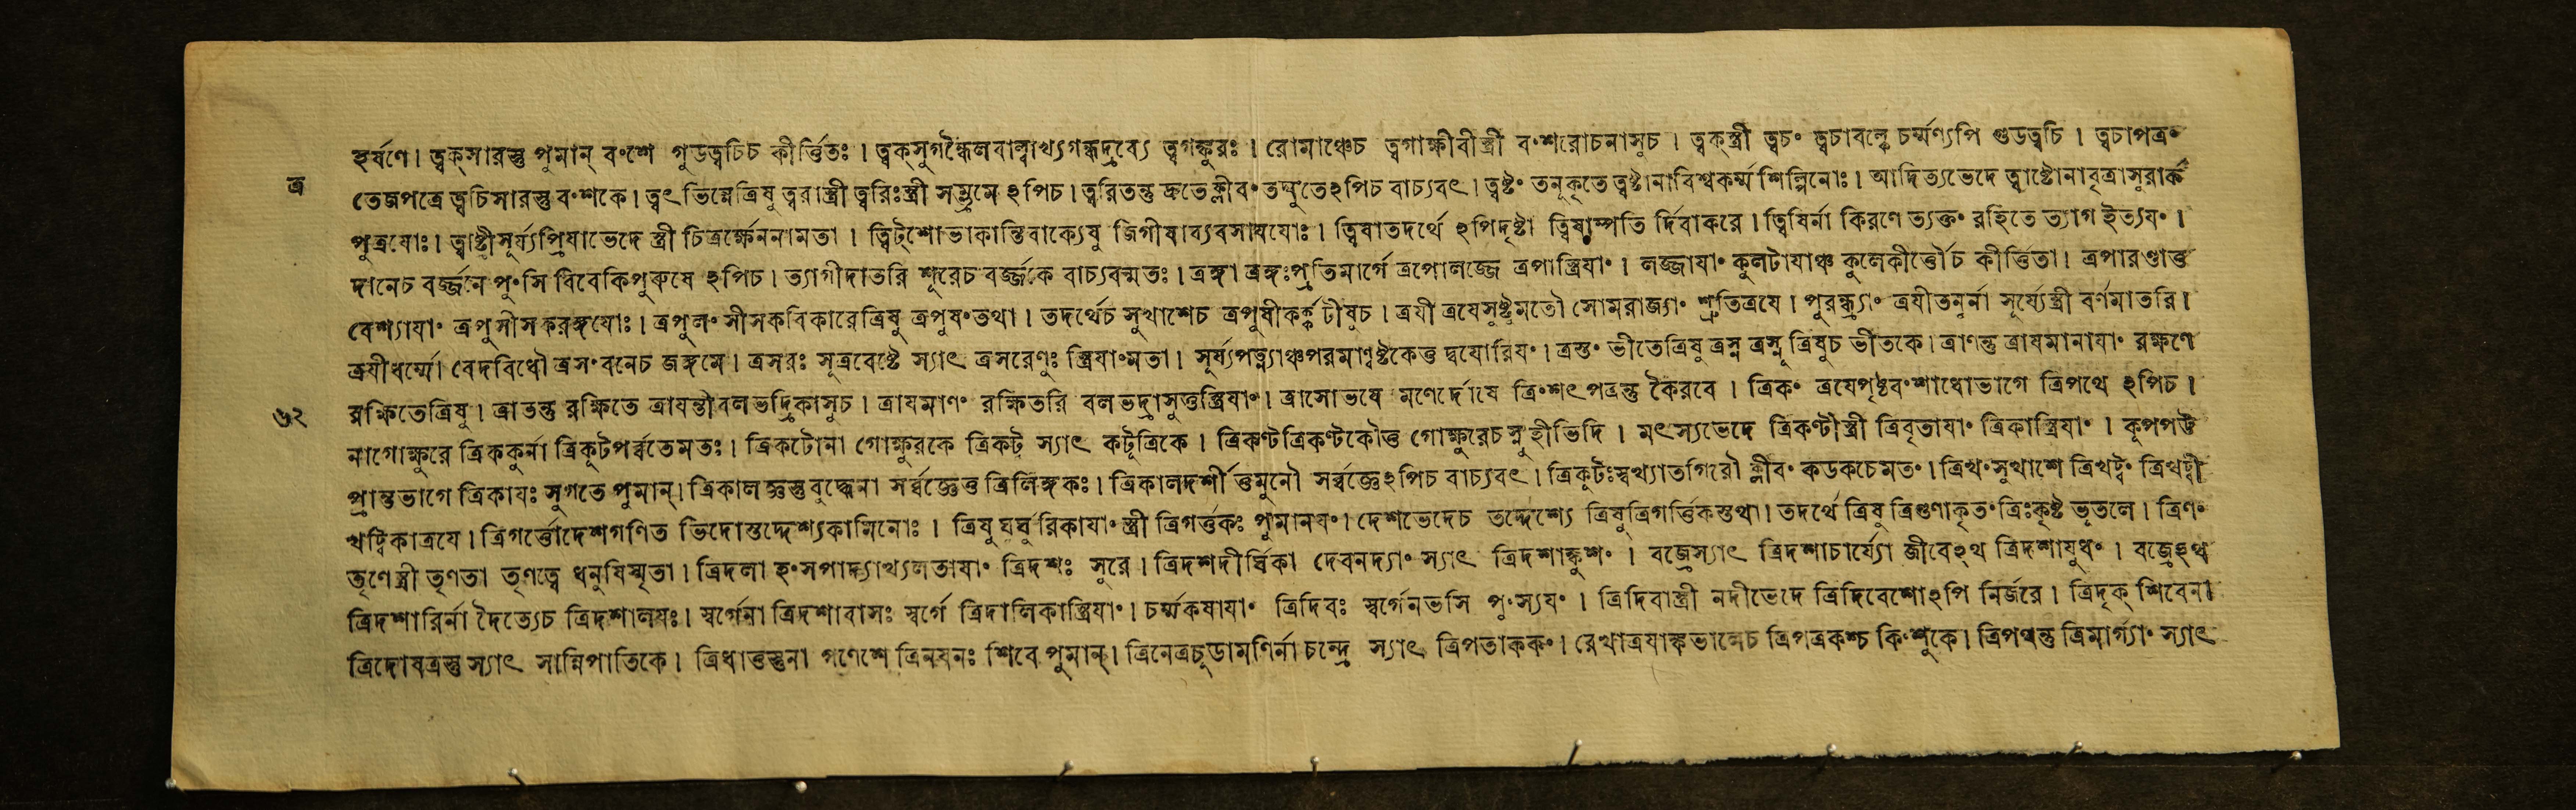 হর্ষণে। ত্বক্সারস্তু পুমান্ বংশে গুডত্বচিচ কীর্ত্তিতঃ। ত্বক্সুগন্ধৈলবাল্বাখ্যগন্ধদ্রব্যে ত্বগঙ্কুরঃ। রোমাঞ্চেচ ত্বগাক্ষীবীস্ত্রী বংশরোচনাসুচ। ত্বক্স্ত্রী ত্বচং ত্বচাবল্কে চর্ম্মণ্যপি গুডত্বচি। ত্বচাপত্রং
ত্র
তেজপত্রে ত্বচিসারস্তু বংশকে। ত্বৎ ভিন্নেত্রিষু ত্বরাস্ত্রী ত্বরিঃস্ত্রী সম্ভ্রমে ঽপিচ। ত্বরিতন্তু দ্রুতেক্লীবং তদ্যুতেঽপিচ বাচ্যবৎ। ত্বষ্টং তনূকৃতে ত্বষ্টানাবিশ্বকর্ম্ম শিল্পিনোঃ। আদিত্যভেদে ত্বাষ্টোনাবৃত্রাসুরার্ক
পুত্রযোঃ। ত্বাষ্ট্রীসূর্য্যপ্রিযাভেদে স্ত্রী চিত্রর্ক্ষেননামতা। ত্বিট্শোভাকান্তিবাক্যেষু জিগীষাব্যবসাযযোঃ। ত্বিষাতদর্থে ঽপিদৃষ্টা ত্বিষাম্পতি র্দিবাকরে। ত্বিষির্না কিরণে ত্যক্তং রহিতে ত্যাগ ইত্যযং।
দানেচ বর্জ্জনে পুংসি বিবেকিপুরুষে ঽপিচ। ত্যাগীদাতরি শূরেচ বর্জ্জকে বাচ্যবন্মতঃ। ত্রঙ্গা ত্রঙ্গঃপ্রতিমার্গে ত্রপোলজ্জে ত্রপাস্ত্রিযাং। লজ্জাযাং কুলটাযাঞ্চ কুলেকীর্ত্তৌচ কীর্ত্তিতা। ত্রপারণ্ডাত্তু
বেশ্যাযাং ত্রপুসীসকরঙ্গযোঃ। ত্রপুলং সীসকবিকারেত্রিষু ত্রপুষংতথা। তদর্থেচ সুখাশেচ ত্রপুষীকর্ক্কটীষুচ। ত্রযী ত্রযেসুষ্টুমতৌ সোমরাজ্যাং শ্রুতিত্রযে। পুরন্ধ্র্যাং ত্রযীতনুর্না সূর্য্যেস্ত্রী বর্ণমাতরি।
ত্রযীধর্ম্মো বেদবিধৌ ত্রসংবনেচ জঙ্গমে। ত্রসরঃ সূত্রবেষ্টে স্যাৎ ত্রসরেণুঃ স্ত্রিযাংমতা। সূর্য্যপত্ন্যাঞ্চপরমাণ্বষ্টকেত্তু দ্বযোরিযং। ত্রস্তং ভীতেত্রিষু ত্রস্ন ত্রস্নূ ত্রিষুচ ভীতকে। ত্রাণন্তু ত্রাযমানাযাং রক্ষণে
৬২
রক্ষিতেত্রিষু। ত্রাতন্তু রক্ষিতে ত্রাযন্তীবলভদ্রিকাসুচ। ত্রাযমাণং রক্ষিতরি বলভদ্রাসুত্তুস্ত্রিযাং। ত্রাসোভযে মণের্দোষে ত্রিংশৎপত্রন্তু কৈরবে। ত্রিকং ত্রযেপৃষ্ঠবংশাধোভাগে ত্রিপথে ঽপিচ।
নাগোক্ষুরে ত্রিককুর্না ত্রিকূটপর্ব্বতেমতঃ। ত্রিকটোনা গোক্ষুরকে ত্রিকটু স্যাৎ কটূত্রিকে। ত্রিকণ্টত্রিকণ্টকৌত্তু গোক্ষুরেচ স্নুহীভিদি। মৎস্যভেদে ত্রিকণ্টীস্ত্রী ত্রিবৃতাযাং ত্রিকাস্ত্রিযাং। কূপপট্ট
প্রান্তভাগে ত্রিকাযঃ সুগতে পুমান্। ত্রিকালজ্ঞস্তুবুদ্ধেনা সর্ব্বজ্ঞেত্তু ত্রিলিঙ্গকঃ। ত্রিকালদর্শীত্তুমুনৌ সর্ব্বজ্ঞেঽপিচ বাচ্যবৎ। ত্রিকূটঃস্বখ্যাতগিরৌ ক্লীবং কডকচেমতং। ত্রিখংসুখাশে ত্রিখট্বং ত্রিখট্বী
খট্বিকাত্রযে। ত্রিগর্ত্তোদেশগণিত ভিদোস্তদ্দেশ্যকামিনোঃ। ত্রিষু ঘর্ঘুরিকাযাং স্ত্রী ত্রিগর্ত্তকঃ পুমানযং। দেশভেদেচ তদ্দেশ্যে ত্রিষুত্রিগর্ত্তিকস্তথা। তদর্থে ত্রিষু ত্রিগুণাকৃতংত্রিঃকৃষ্ট ভূতলে। ত্রিণং
তৃণেস্ত্রী তৃণতা তৃণত্বে ধনুষিস্মৃতা। ত্রিদলা হংসপাদ্যাখ্যলতাযাং ত্রিদশঃ সুরে। ত্রিদশদীর্ঘিকা দেবনদ্যাং স্যাৎ ত্রিদশাঙ্কুশং। বজ্রেস্যাৎ ত্রিদশাচার্য্যো জীবেঽথ ত্রিদশাযুধং। বজ্রেঽথ
ত্রিদশারির্না দৈত্যেচ ত্রিদশালযঃ। স্বর্গেনা ত্রিদশাবাসঃ স্বর্গে ত্রিদালিকাস্ত্রিযাং। চর্ম্মকষাযাং ত্রিদিবঃ স্বর্গেনভসি পুংস্যযং। ত্রিদিবাস্ত্রী নদীভেদে ত্রিদিবেশোঽপি নির্জরে। ত্রিদৃক্ শিবেনা
ত্রিদোষত্রস্তু স্যাৎ সান্নিপাতিকে। ত্রিধাত্তুস্তুনা গণেশে ত্রিনযনঃ শিবে পুমান্। ত্রিনেত্রচূডামণির্না চন্দ্রে স্যাৎ ত্রিপতাককং। রেখাত্রযাঙ্কভালেচ ত্রিপত্রকশ্চ কিংশুকে। ত্রিপথন্তু ত্রিমার্গ্যাং স্যাৎ